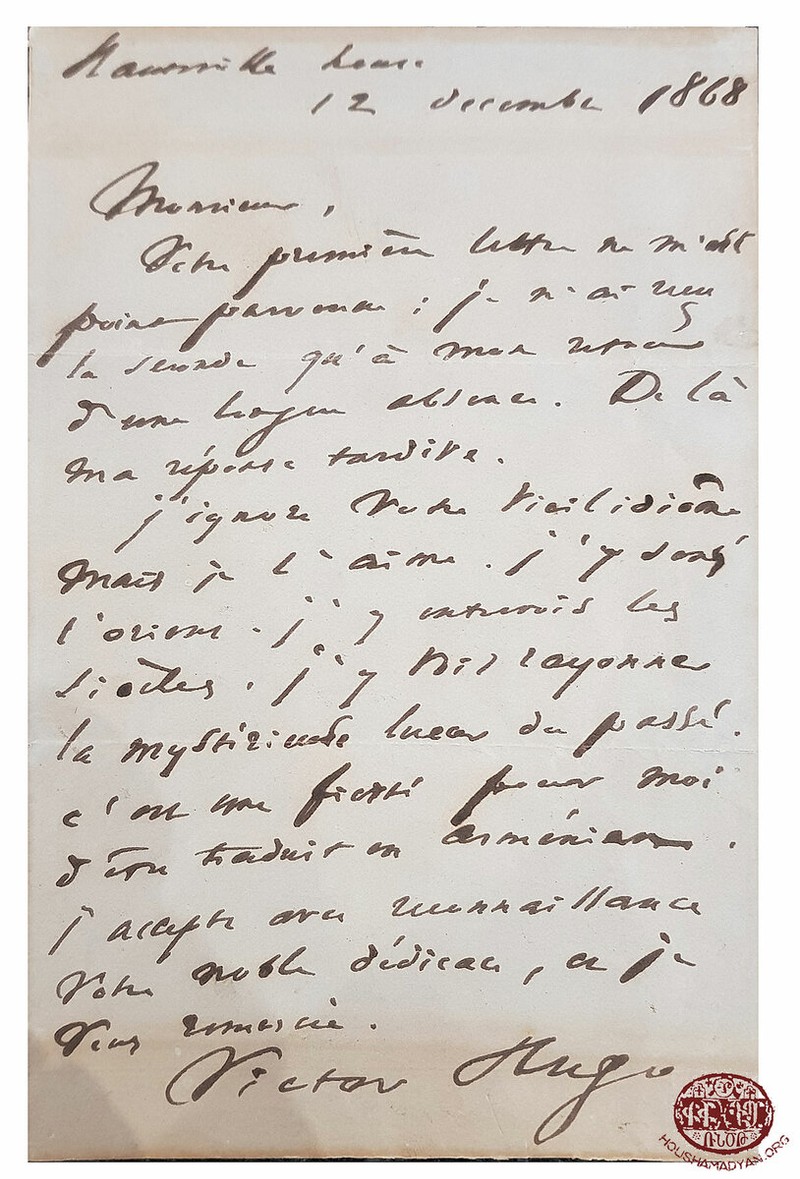 Hauteville house
12 decembre 1868
Monsieur,
Votre première lettre ne m'est
point parvenue ; je n'ai reçu
la seconde qu'à mon retour
d'une longue absence. De là
ma réponse tardive.
j'ignore votre vieil idiôme
mais je l'aime. j'y sens
l'orient. j'y entrevois les
siècles. j'y vois rayonner
la mystérieuse lueur du passé.
c'est une fierté pour moi
d'être traduit en arménien.
j'accepte avec reconnaissance
votre noble dédicace, et je
vous remercie.
Victor Hugo
HOUSHAMADYAN.ORG